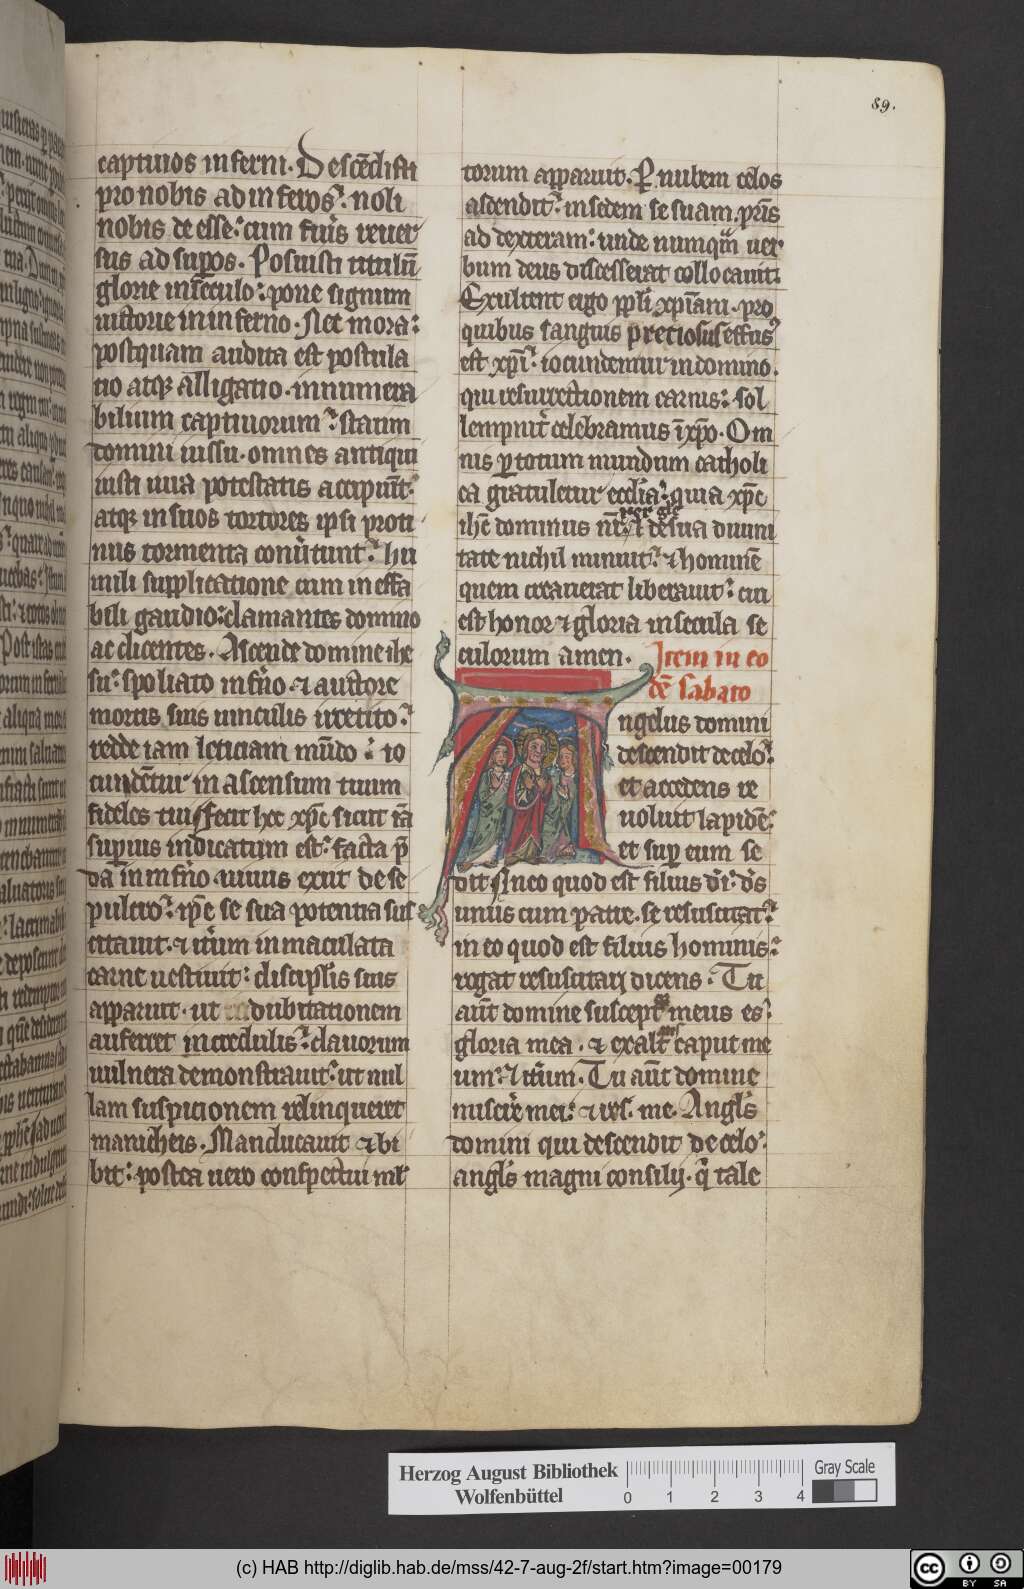 89.
captiuos inferni. Descēdisti
pro nobis ad inferos: noli
nobis de esse: cum fu͛is reuer
sus ad supos. Posuisti titulū
glorie in seculo: pone signum
uictorie in inferno. Nec mora:
postquam audita est postula
tio atqȝ alligatio. innumera
bilium captiuorum: statim
domini iussu. omnes antiqui
iusti iura potestatis accipiūt.
atqȝ in suos tortores ipsi proti
nus tormenta conu͛tunt: hu
mili supplicatione cum ineffa
bili gaudio: clamantes domino
ac dicentes. Ascende domine ihe
su: spoliato inf͛no. ⁊ auctore
mortis suis uinculis irretito:
redde iam leticiam mūdo: io
cundētur in ascensum tuum
fideles tui. Fecit hec xp̄c sicut iā
supius indicatum est: facta p̄
da in inf͛no. uiuus exiit de se
pulcro: ip̄e se sua potentia sus
citauit. ⁊ it͛um inmaculata
carne uestiuit: discipl̄is suis
apparuit. ut dubitationem
auferret incredulis: clauorum
uulnera demonstrauit: ut nul
lam suspicionem relinqueret
manicheis. Manducauit ⁊ bi
bit: postea uero conspectui ml̄
torum apparuit. Per nubem celos
ascendit: in sedem se suam. pr̄is
ad dexteram: unde numqm̄ uer
bum deus discesserat collocauit.
Exultent ergo ppl̄i xp̄iani. pro
quibus sanguis preciosus effusꝰ
est xp̄i: iocundentur in domino.
qui resurrectionem carnis: sol
lempnit͛ celebramus ī xp̄o. Om
nis p totum mundum catholi
ca gratuletur ecclīa: quia xp̄c
ihc̄ dominus nr̄ de sua diuini
tate nichil minuit: ⁊ hominē
quem creauerat liberauit: cui
est honor ⁊ gloria in secula se
culorum amen.
Item in eo
dē sabato
Angelus domini
descendit de celo:
et accedens re
uoluit lapidē:
et sup eum se
dit. In eo quod est filius dī: dꝰs
unus cum patre. se resuscitat:
in eo quod est filius hominis:
rogat resuscitari dicens. Tu
aūt domine susceptor meus es:
gloria mea. ⁊ exalt caput me
um: ⁊ it͛um. Tu aūt domine
miserere mei: ⁊ res. me. Angl̄s
domini qui descendit de celo:
angl̄s magni consilij. q̄ tale
Herzog August Bibliothek
Wolfenbüttel
0 1 2 3 4
Gray Scale
(c) HAB http://diglib.hab.de/mss/42-7-aug-2f/start.htm?image=00179
cc BY SA